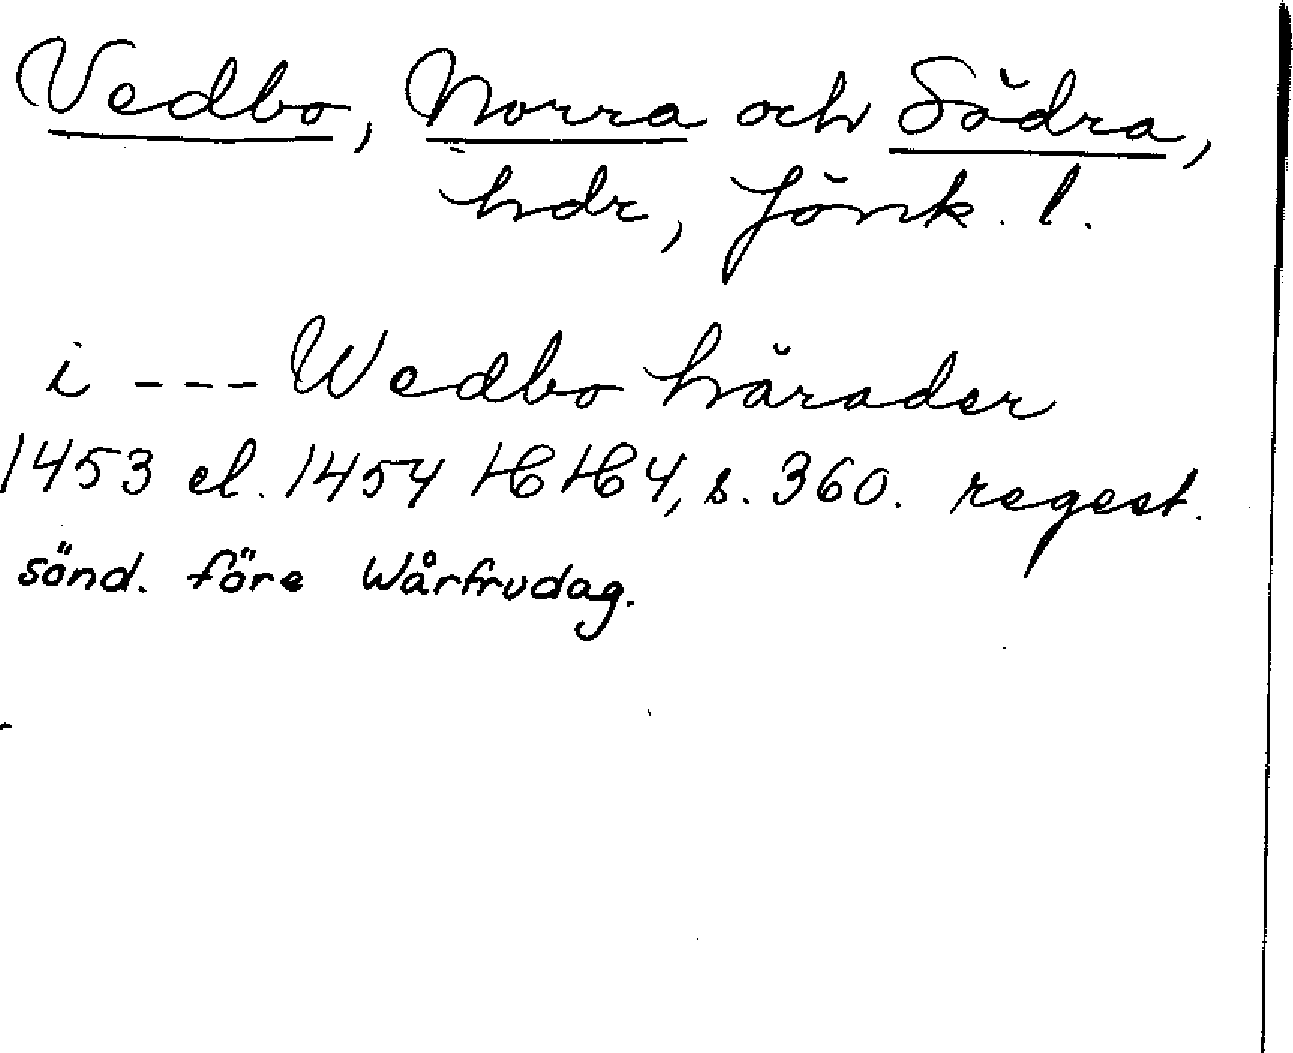 Vedbo, Norra och Södra,
hdr, Jönk. l.
i --- Wedbo härader
1453 el. 1454 HH 4, s. 360. regest.
sönd. före Wårfrudag.